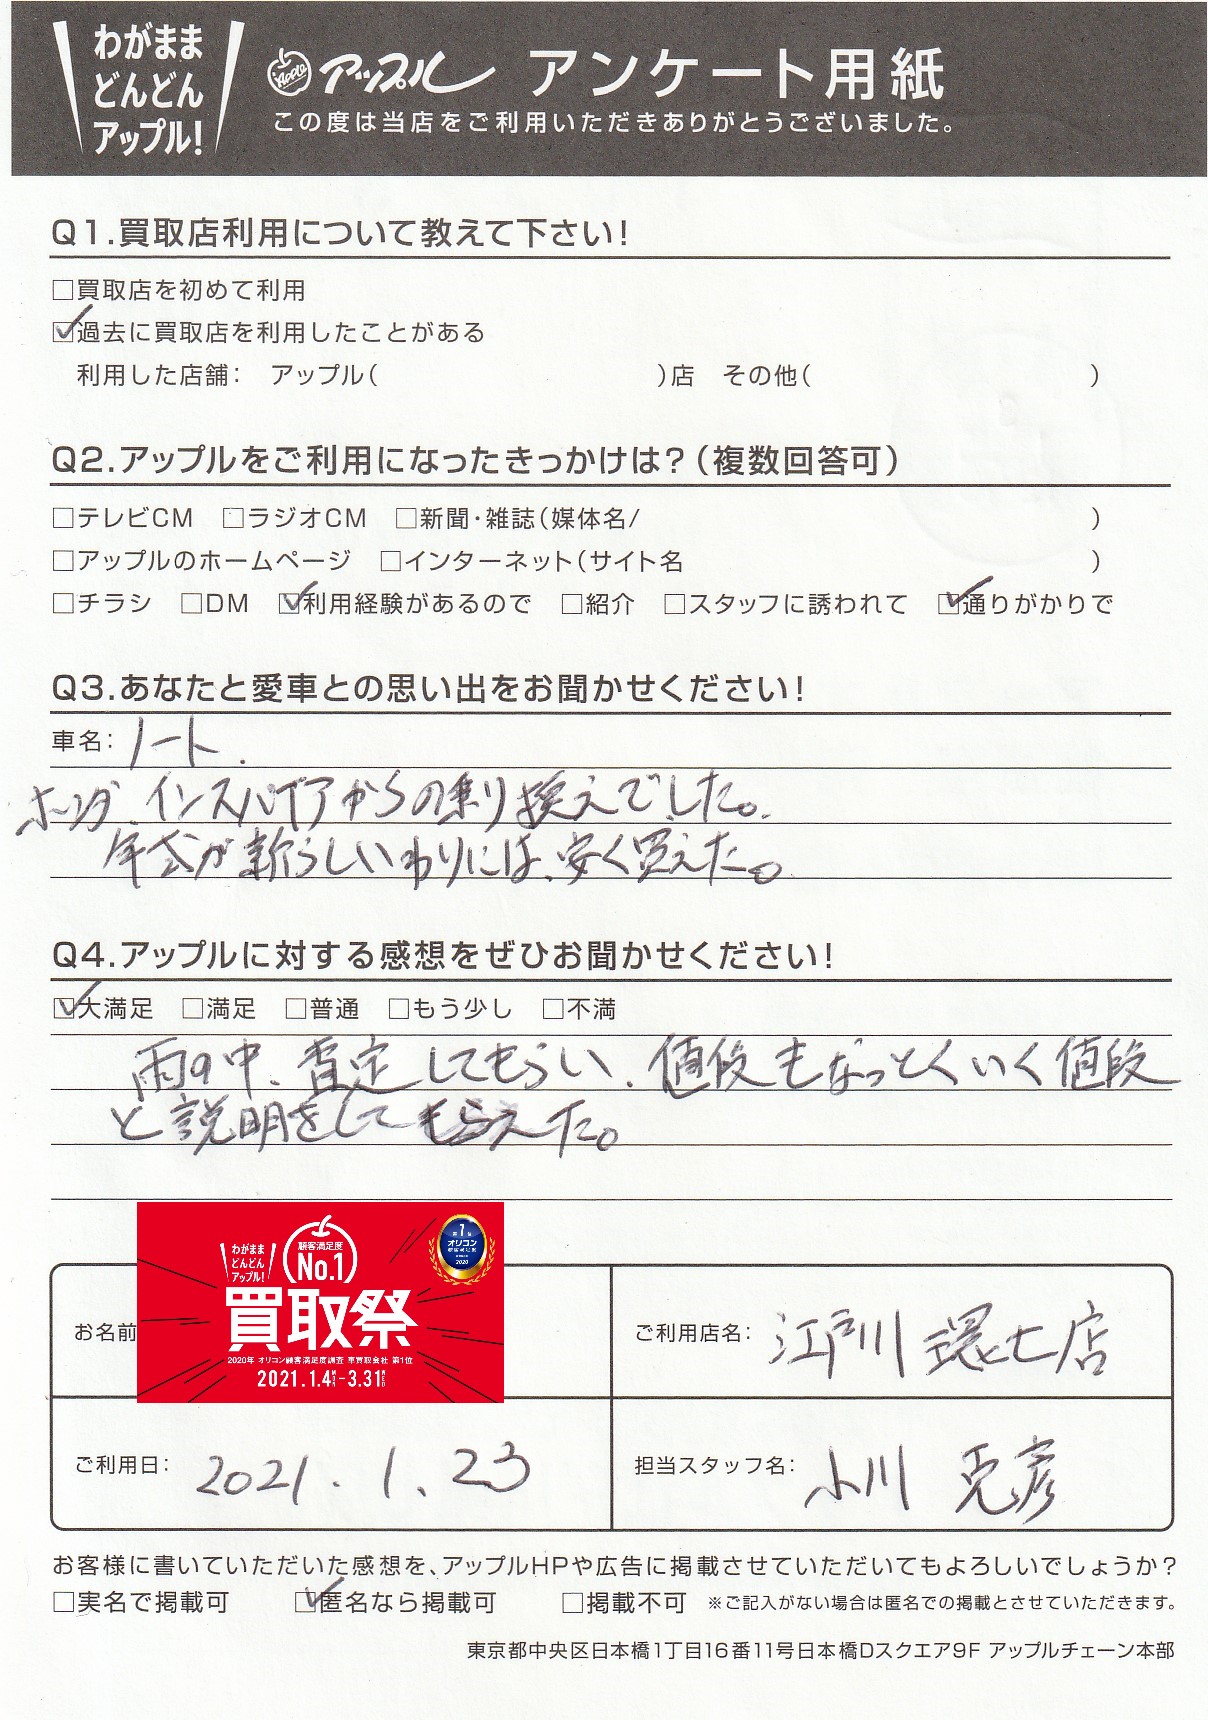 わがまま
どんどん
アップル!
Apple アップル アンケート用紙
この度は当店をご利用いただきありがとうございました。
Q1.買取店利用について教えて下さい!
□買取店を初めて利用
☑過去に買取店を利用したことがある
利用した店舗: アップル( )店 その他( )
Q2.アップルをご利用になったきっかけは?(複数回答可)
□テレビCM □ラジオCM □新聞・雑誌(媒体名/ )
□アップルのホームページ □インターネット(サイト名 )
□チラシ □DM ☑利用経験があるので □紹介 □スタッフに誘われて ☑通りがかりで
Q3.あなたと愛車との思い出をお聞かせください!
車名: ノート.
ホンダ、インスパイアからの乗り換えでした。
年式が新らしいわりには、安く買えた。
Q4.アップルに対する感想をぜひお聞かせください!
☑大満足 □満足 □普通 □もう少し □不満
雨の中、査定してもらい、値段もなっとくいく値段
と説明をしてもらえた。
わがまま
どんどん
アップル!
顧客満足度
No.1
第1位
オリコン
顧客満足度
2020
買取祭
2020年 オリコン顧客満足度調査 車買取会社 第1位
2021.1.4MON-3.31WED
お名前
ご利用店名: 江戸川環七店
ご利用日: 2021.1.23
担当スタッフ名: 小川 克彦
お客様に書いていただいた感想を、アップルHPや広告に掲載させていただいてもよろしいでしょうか?
□実名で掲載可 ☑匿名なら掲載可 □掲載不可 ※ご記入がない場合は匿名での掲載とさせていただきます。
東京都中央区日本橋1丁目16番11号日本橋Dスクエア9F アップルチェーン本部